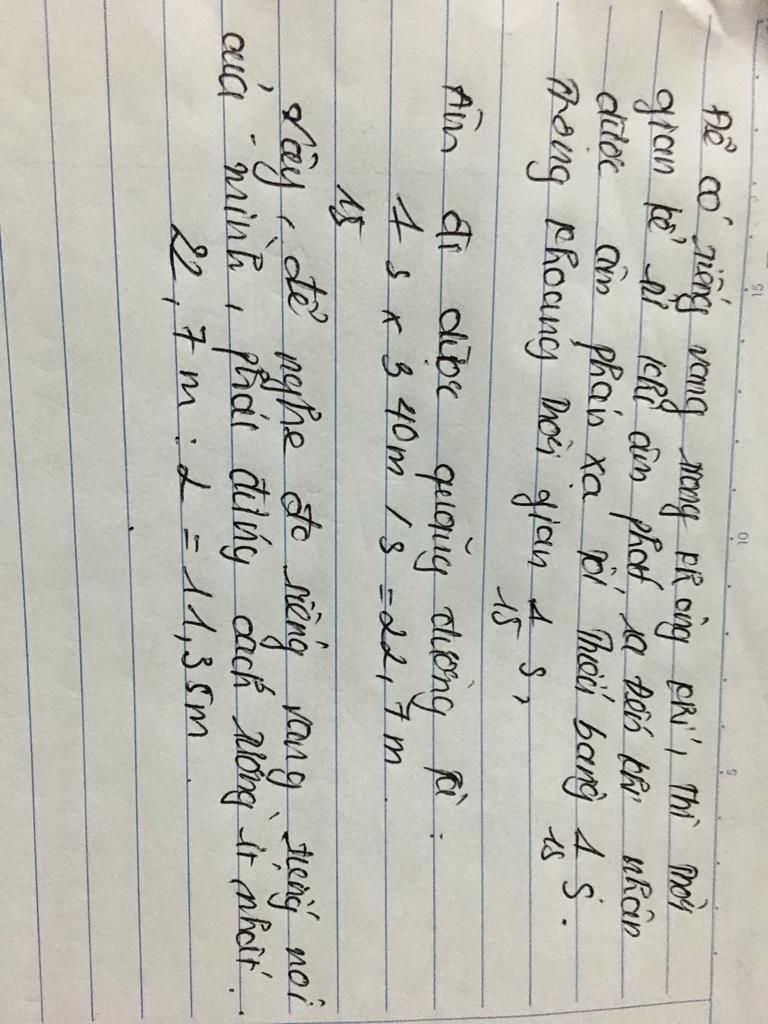 Để có tiếng vang trong không khí, thì thời
gian kể từ khi âm phát ra đến khi nhận
được âm phản xạ tối thiểu bằng 1/15 s.
Trong khoảng thời gian 1/15 s,
Âm đi được quãng đường là:
1/15 s x 340m/s = 22,7m
Vậy, để nghe đc tiếng vang tiếng nói
của mình, phải đứng cách tường ít nhất.
22,7m : 2 = 11,35m
15
10
5